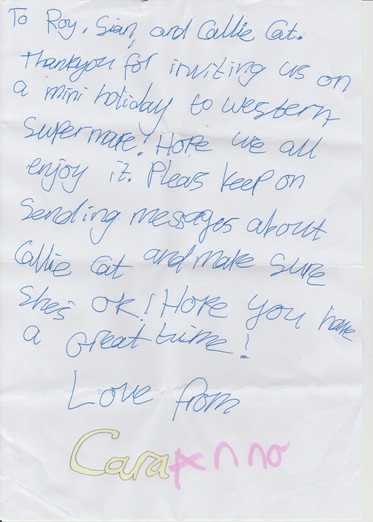 To Roy, Sian, and Callie Cat.
Thankyou for inviting us on
a mini holiday to western
Supermare! Hope we all
enjoy it. Pleas keep on
sending messages about
Callie Cat and make sure
She's ok! Hope you have
a Great time!
Love from
Cara